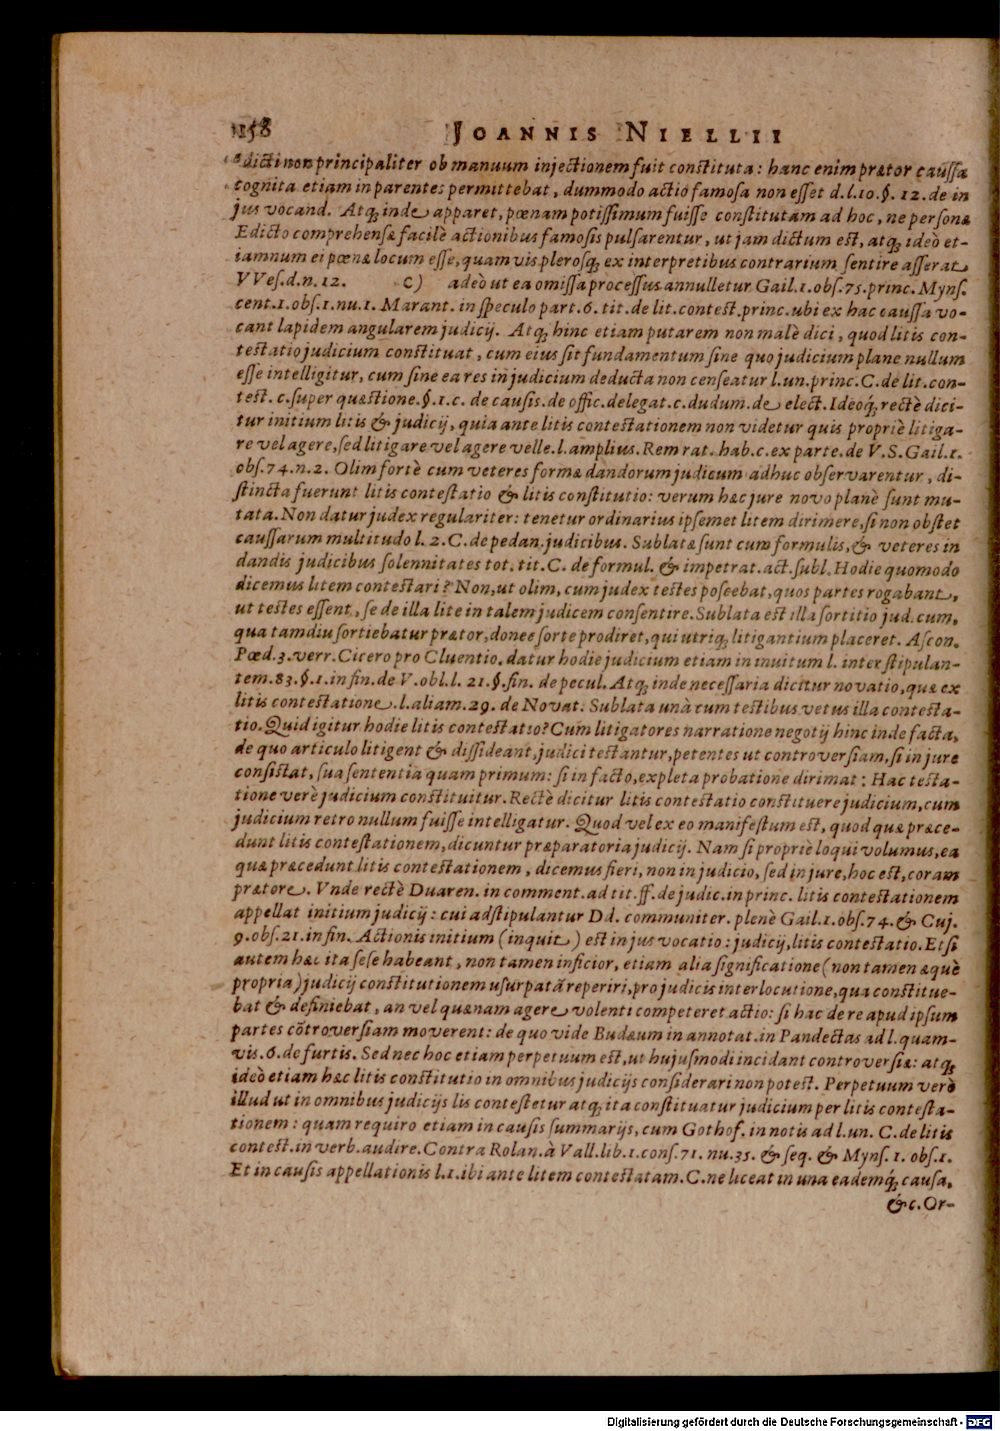 158 JOANNIS NIELLII
dicti non principaliter ob manuum injectionem fuit constituta: hanc enim prætor caussa
cognita etiam in parentes permittebat, dummodo actio famosa non esset d.l.10.§. 12. de in
jus vocand. Atq; inde apparet, pœnam potissimum fuisse constitutam ad hoc, ne personæ
Edicto comprehensæ facilè actionibus famosis pulsarentur, ut jam dictum est, atq; ideò et-
iamnum ei pœnæ locum esse, quamvis plerosq; ex interpretibus contrarium sentire asserat
VVes.d.n. 12. c) adeò ut ea omissa processus annulletur Gail.1.obs.75.princ. Myns.
cent.1.obs.1.nu.1. Marant. in speculo part.6. tit.de lit.contest.princ.ubi ex hac caussa vo-
cant lapidem angularem judicij. Atq; hinc etiam putarem non malè dici, quod litis con-
testatio judicium constituat, cum eius sit fundamentum sine quo judicium plane nullum
esse intelligitur, cum sine ea res in judicium deducta non censeatur l.un.princ.C. de lit.con-
test. c.super quæstione.§.1.c. de causis.de offic.delegat.c.dudum.de elect. Ideoq; rectè dici-
tur initium litis & judicij, quia ante litis contestationem non videtur quis propriè litiga-
re vel agere, sed litigare vel agere velle.l.amplius. Rem rat. hab.c.ex parte.de V.S.Gail.1.
obs.74.n.2. Olim fortè cum veteres formæ dandorum judicum adhuc observarentur, di-
stincta fuerunt litis contestatio & litis constitutio: verum hæc jure novo planè sunt mu-
tata. Non datur judex regulariter: tenetur ordinarius ipsemet litem dirimere, si non obstet
caussarum multitudo l. 2.C.de pedan.judicibus. Sublatæ sunt cum formulis, & veteres in
dandis judicibus solennitates tot. tit.C. de formul. & impetrat.act.subl. Hodie quomodo
dicemus litem contestari? Non, ut olim, cum judex testes poscebat, quos partes rogabant,
ut testes essent, se de illa lite in talem judicem consentire. Sublata est illa sortitio jud. cum,
qua tamdiu sortiebatur prætor, donec sorte prodiret, qui utriq; litigantium placeret. Ascon.
Pœd.3.verr. Cicero pro Cluentio. datur hodie judicium etiam in invitum l. inter stipulan-
tem.83.§.1.in fin.de V.obl.l. 21.§.fin. de pecul. Atq; inde necessaria dicitur novatio, quæ ex
litis contestatione.l.aliam.29. de Novat. Sublata unà cum testibus vetus illa contesta-
tio. Quid igitur hodie litis contestatio? Cum litigatores narratione negotij hinc inde facta,
de quo articulo litigent & dissideant, judici testantur, petentes ut controversiam, si in jure
consistat, sua sententia quam primum: si in facto, expleta probatione dirimat: Hac testa-
tione verè judicium constituitur. Rectè dicitur litis contestatio constituere judicium, cum
judicium retro nullum fuisse intelligatur. Quod vel ex eo manifestum est, quod quæ præce-
dunt litis contestationem, dicuntur præparatoria judicij. Nam si propriè loqui volumus, ea
quæ præcedunt litis contestationem, dicemus fieri, non in judicio, sed in jure, hoc est, coram
prætore. Vnde rectè Duaren. in comment. ad tit.ff.de judic.in princ. litis contestationem
appellat initium judicij: cui adstipulantur Dd. communiter. plenè Gail.1.obs.74.& Cuj.
9.obs.21.in fin. Actionis initium (inquit) est in jus vocatio: judicij, litis contestatio. Etsi
autem hæc ita sese habeant, non tamen inficior, etiam alia significatione (non tamen æquè
propria) judicij constitutionem usurpatã reperiri, pro judicis interlocutione, qua constitue-
bat & definiebat, an vel quænam agere volenti competeret actio: si hac de re apud ipsum
partes cõtroversiam moverent: de quo vide Budæum in annotat.in Pandectas ad l.quam-
vis.6.de furtis. Sed nec hoc etiam perpetuum est, ut hujusmodi incidant controversiæ: atq;
ideò etiam hæc litis constitutio in omnibus judicijs considerari non potest. Perpetuum verò
illud ut in omnibus judicijs lis contestetur atq; ita constituatur judicium per litis contesta-
tionem: quam requiro etiam in causis summarijs, cum Gothof. in notis ad l.un. C.de litis
contest.in verb.audire. Contra Rolan.à Vall.lib.1.cons.71. nu.35. & seq. & Myns. 1. obs.1.
Et in causis appellationis l.1.ibi ante litem contestatam.C.ne liceat in una eademq; causa.
&c. Or-
Digitalisierung gefördert durch die Deutsche Forschungsgemeinschaft - DFG